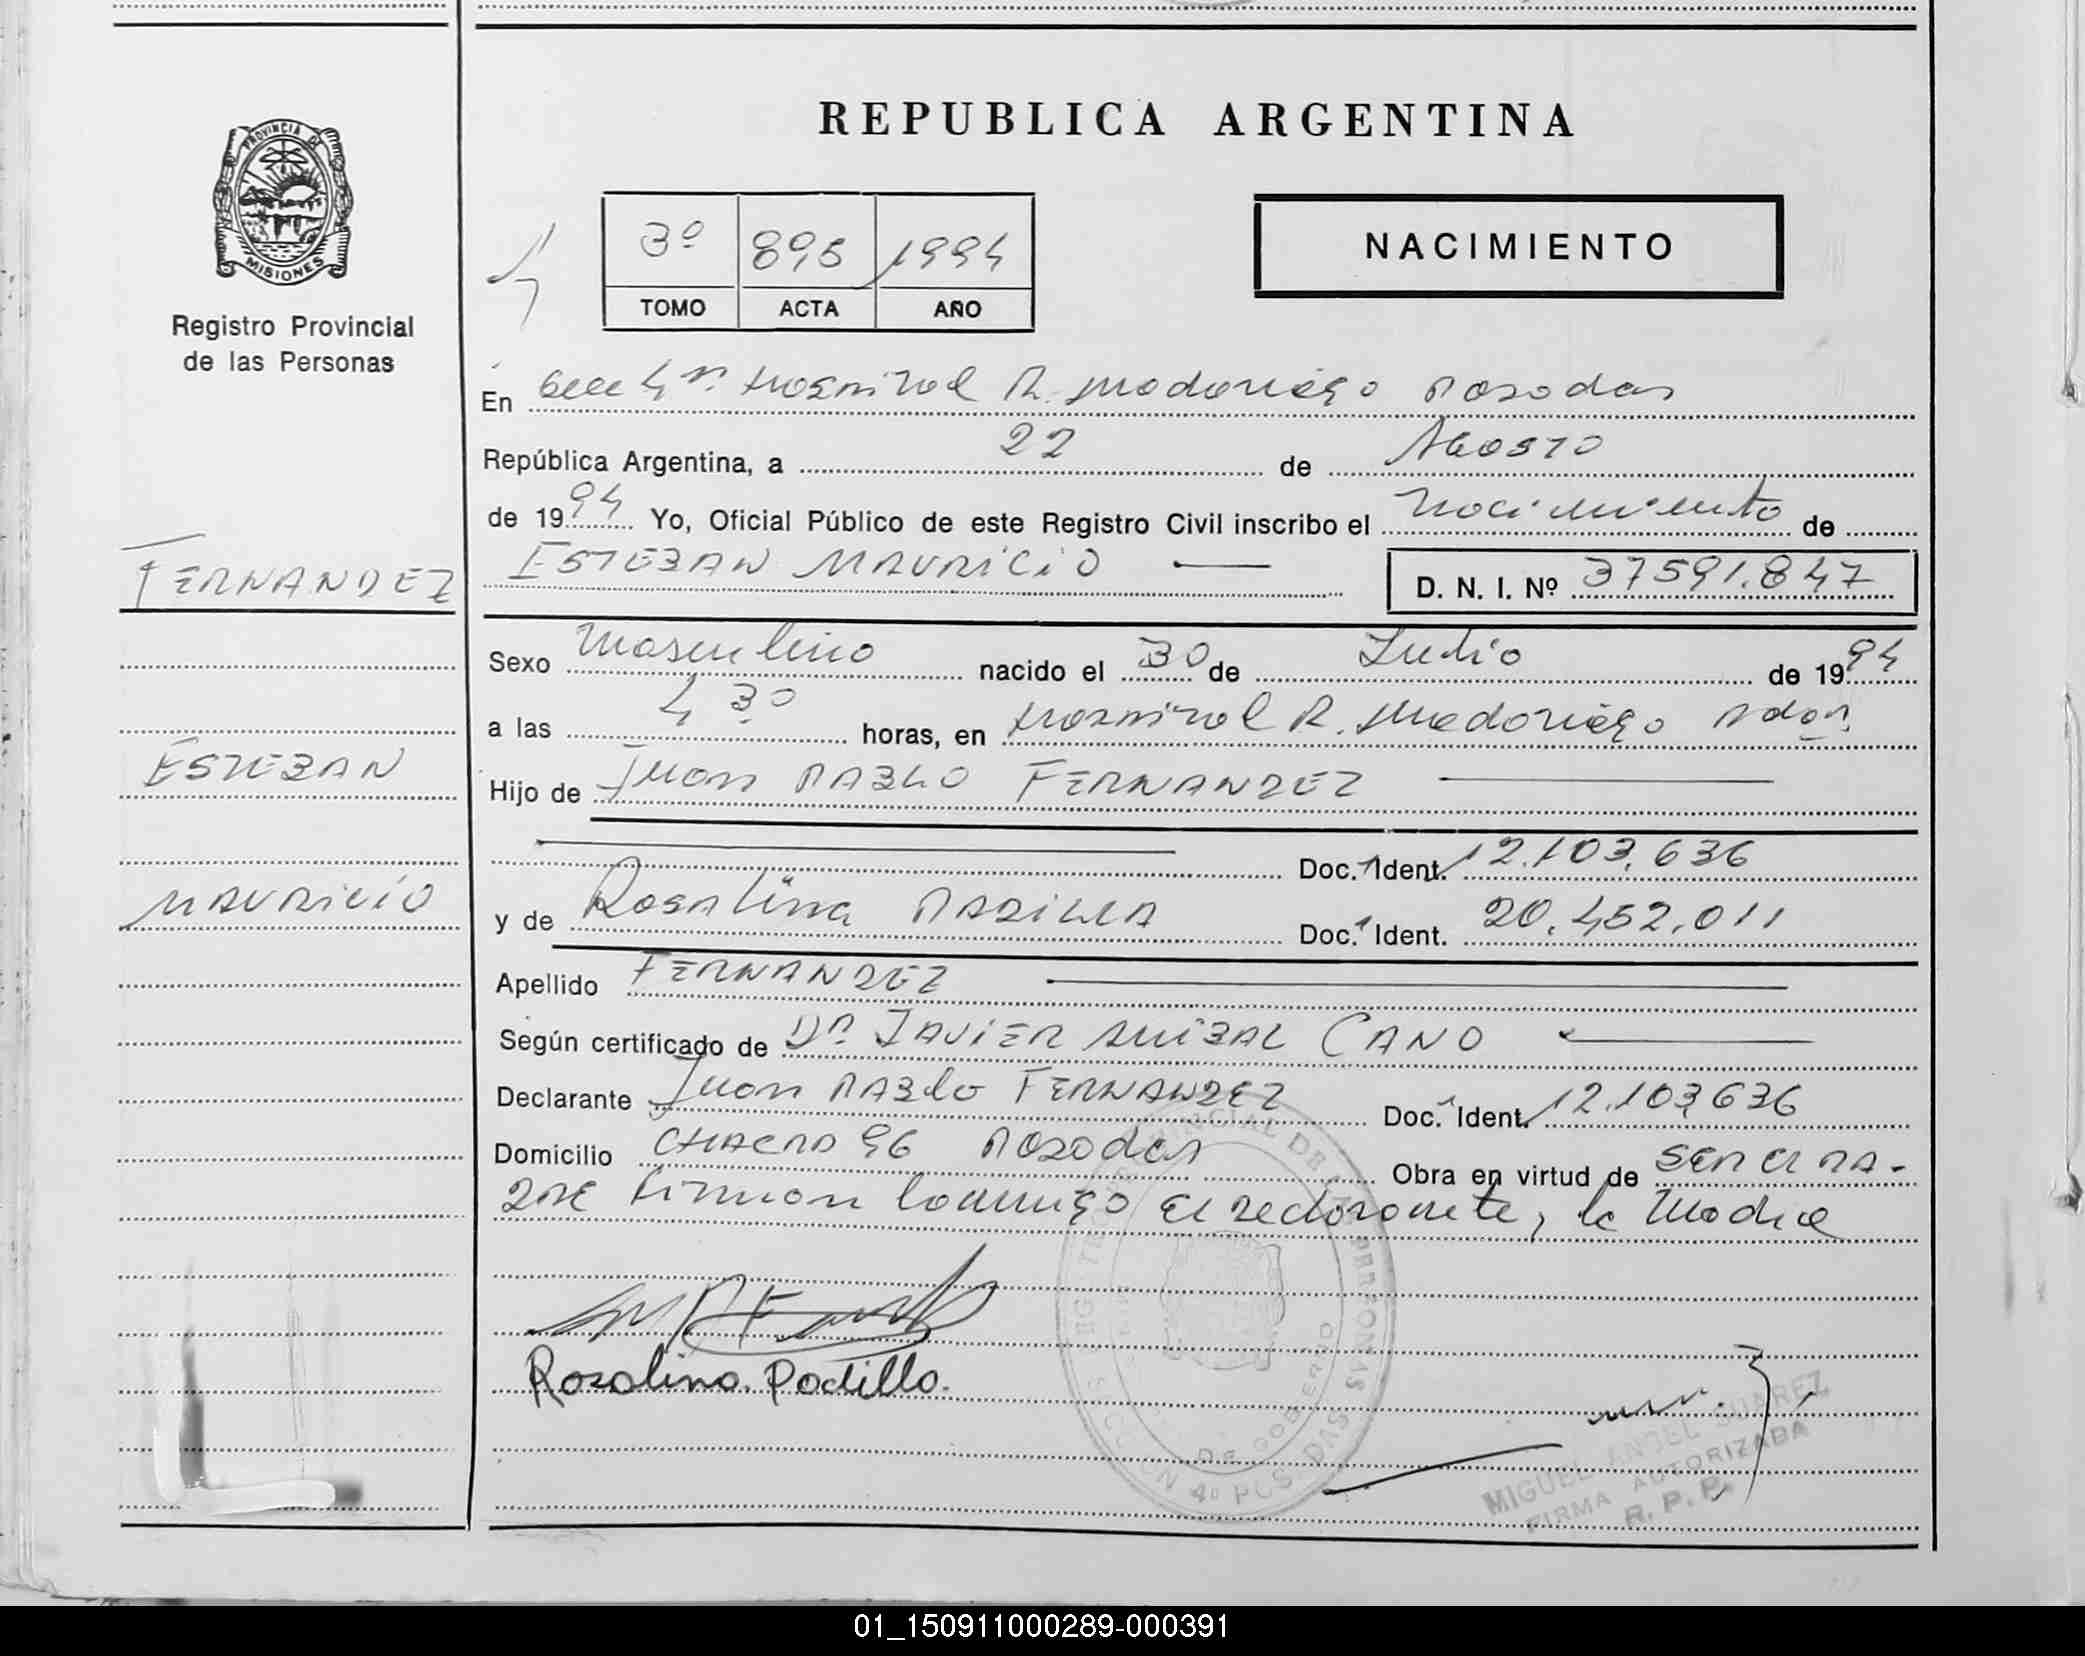 REPUBLICA ARGENTINA
PROVINCIA DE
MISIONES
Registro Provincial
de las Personas
3º 895 1994
TOMO ACTA AÑO
NACIMIENTO
En Secc 4ª. Hospital R. Madariaga Posadas
República Argentina, a 22 de Agosto
de 1994 Yo, Oficial Público de este Registro Civil inscribo el Nacimiento de
ESTEBAN MAURICIO D. N. I. Nº 37591.847
FERNANDEZ
ESTEBAN
MAURICIO
Sexo Masculino nacido el 30 de Julio de 1994
a las 4 30 horas, en Hospital R. Madariaga Pdas.
Hijo de Juan PABLO FERNANDEZ
Doc. Ident. 12.103.636
y de Rosalina PADILLA Doc. Ident. 20.452.011
Apellido FERNANDEZ
Según certificado de Dr. JAVIER ANIBAL CANO
Declarante Juan PABlo FERNANDEZ Doc. Ident. 12.103636
Domicilio CHACRA 96 Posadas Obra en virtud de SER EL PA-
DRE Firman conmigo El declarante, la Madre
Rosalina. Padilla.
DE GOBIERNO
MIGUEL ANGEL SUAREZ
FIRMA AUTORIZADA
R.P.P.
01_150911000289-000391